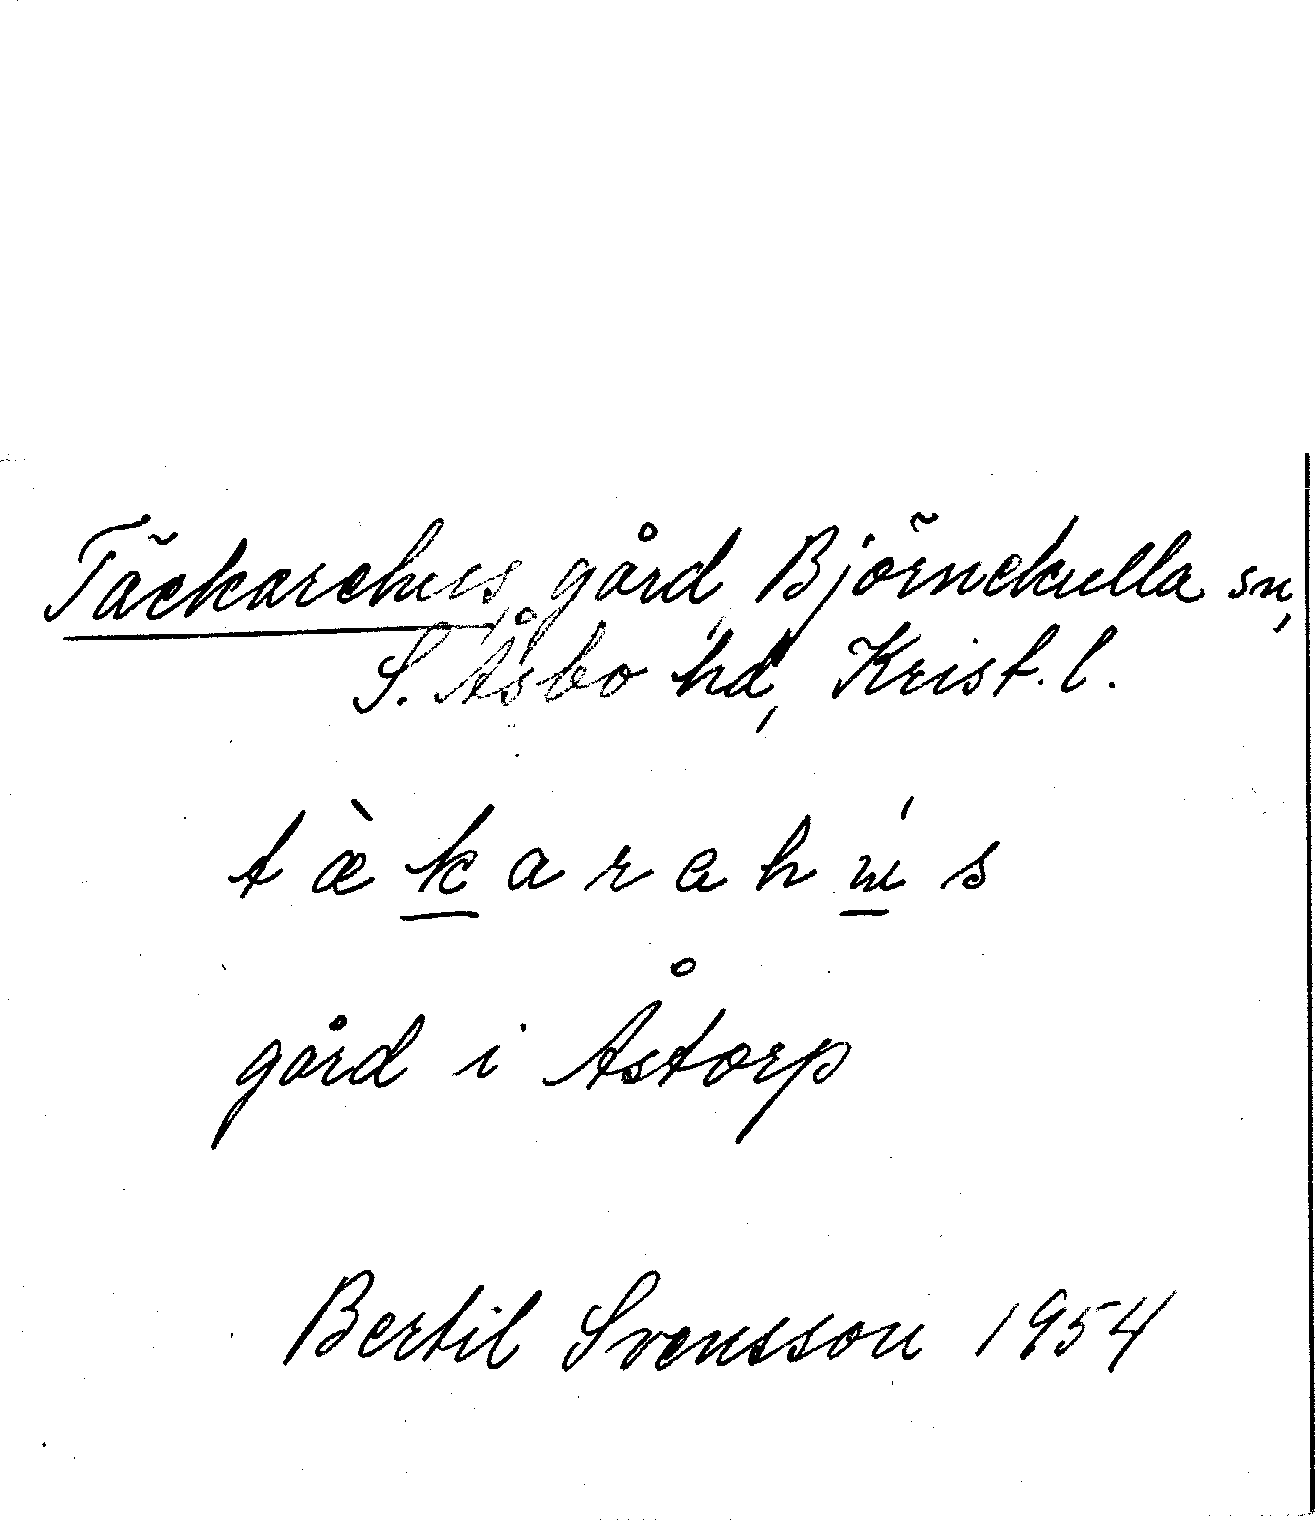 Täckarehus, gård, Björnekulla sn,
S. Åsbo hd, Krist. l.
tæ̀k̲arahú̲s
gård i Åstorp
Bertil Svensson 1954